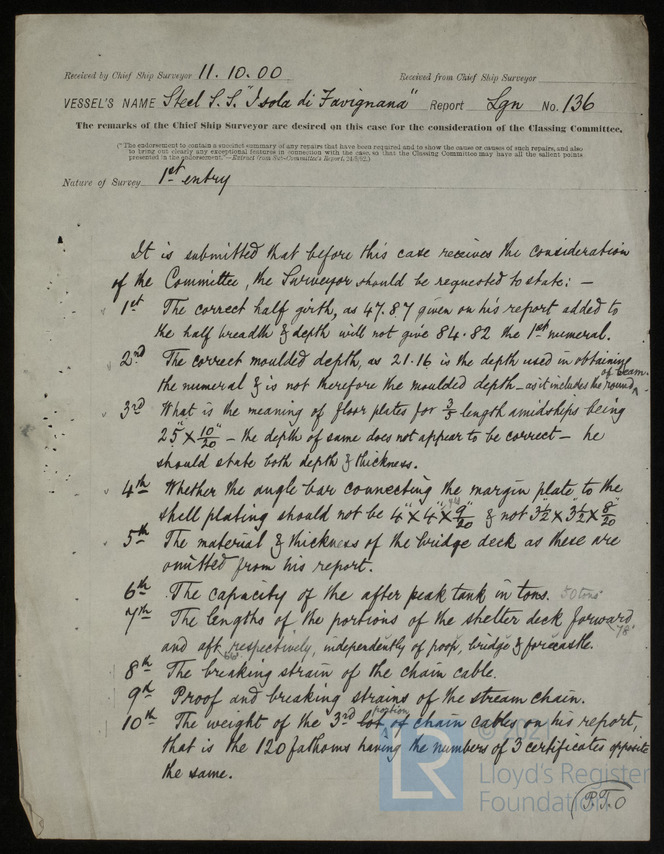 Received by Chief Ship Surveyor 11.10.00 Received from Chief Ship Surveyor
VESSEL'S NAME Steel S.S. "Isola di Favignana" Report Lgn No. 136
The remarks of the Chief Ship Surveyor are desired on this case for the consideration of the Classing Committee.
("The endorsement to contain a succinct summary of any repairs that have been required and to show the cause or causes of such repairs, and also
to bring out clearly any exceptional features in connection with the case, so that the Classing Committee may have all the salient points
presented in the endorsement."—Extract from Sub-Committee's Report,
Nature of Survey 1st entry
It is submitted that before this case receives the consideration
of the Committee, the Surveyor should be requested to state: —
1st The correct half girth, as 47.87 given on his report added to
the half breadth & depth will not give 84.82 the 1st numeral.
2nd The correct moulded depth, as 21.16 is the depth used in obtaining
the numeral & is not therefore the moulded depth - as it includes the round of beam.
3rd What is the meaning of floor plates for 3/5 length amidships being
25" x 10"/20 - the depth of same does not appear to be correct - he
should state both depth & thickness.
4th Whether the angle bar connecting the margin plate to the
shell plating should not be 4" x 4" x 9"/20 & not 3½" x 3½" x 8/20
5th The material & thickness of the bridge deck as these are
omitted from his report.
6th The capacity of the after peak tank in tons. 50 tons
7th The lengths of the portions of the shelter deck forward
78'
and aft respectively, independently of poop, bridge & forecastle.
8th The breaking strain of the chain cable.
9th Proof and breaking strains of the stream chain.
10th The weight of the 3rd lot portion of chain cables on his report,
that is the 120 fathoms having the numbers of 3 certificates opposite
the same.
(P.T.O
© 2021
LR
Lloyd's Register
Foundation